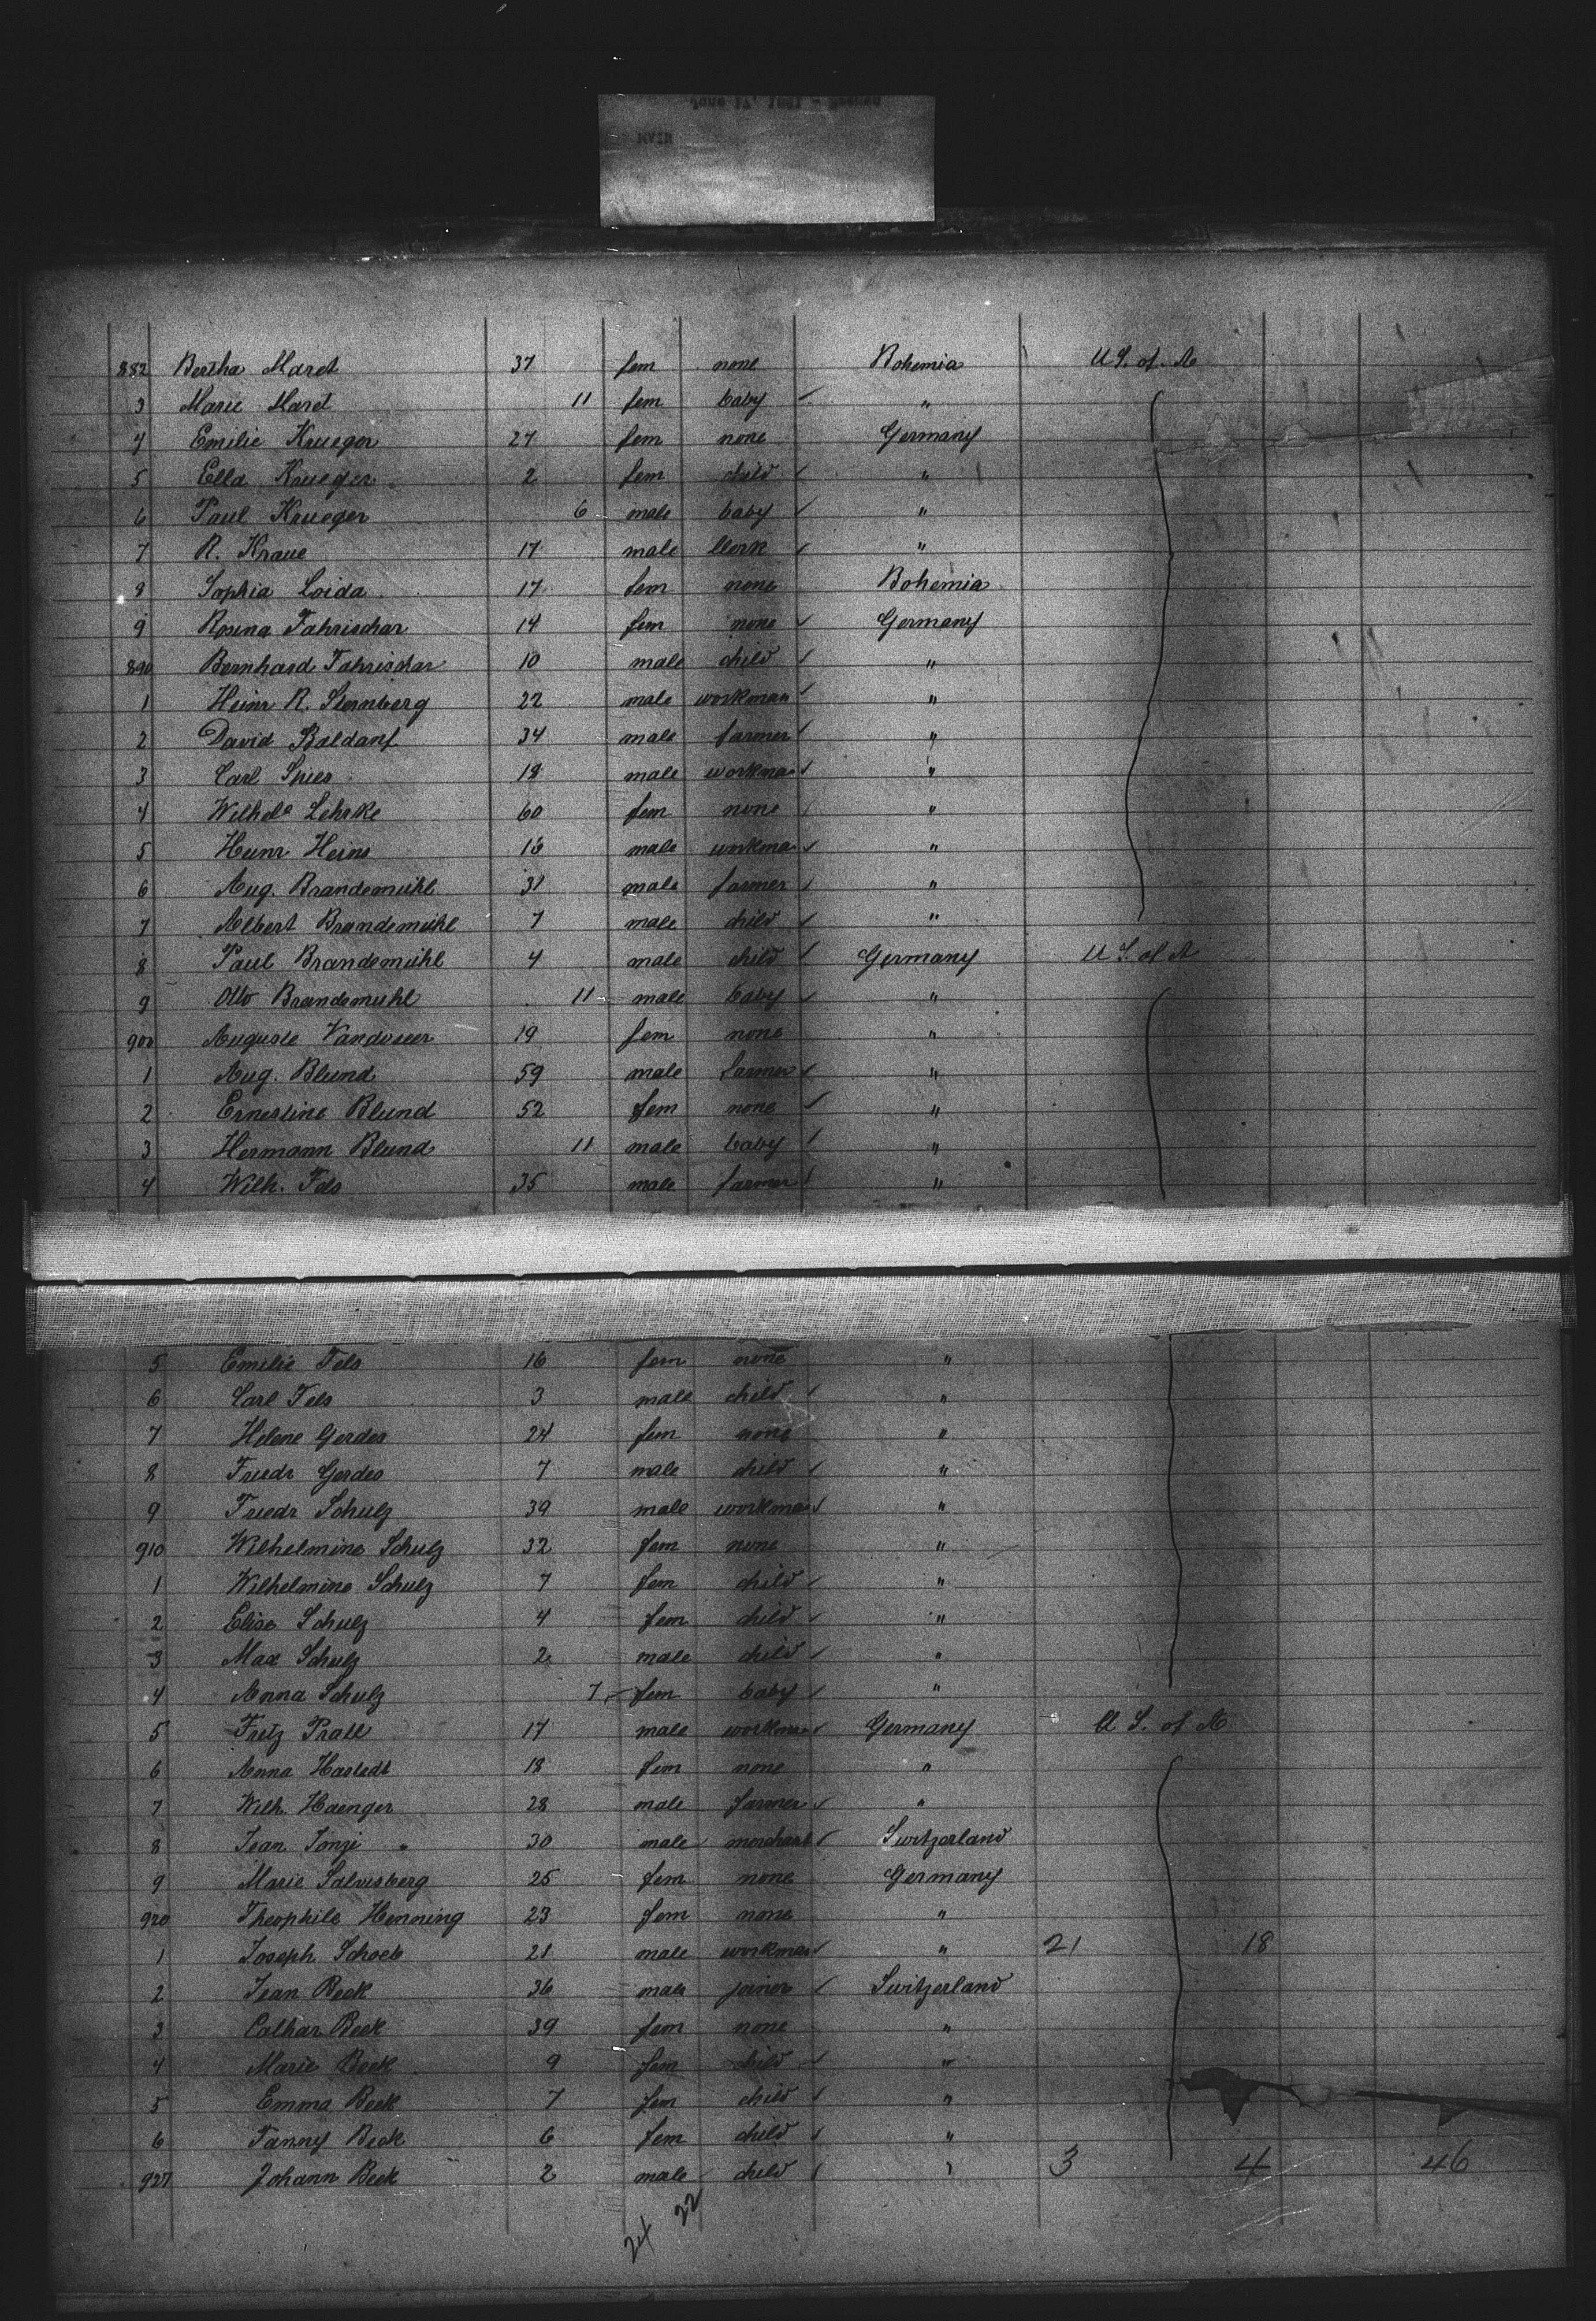 MAIN
882 Bertha Maret 37 fem none Bohemia U S. of. A
3 Marie Maret 11 fem baby ✓ "
4 Emilie Krueger 27 fem none Germany
5 Ella Krueger 2 fem child ✓ "
6 Paul Krueger 6 male baby ✓ "
7 R. Kraue 17 male Clerk ✓ "
8 Sophia Loida 17 fem none Bohemia
9 Rosina Fahrischar 14 fem none ✓ Germany
890 Bernhard Fahrischar 10 male child ✓ "
1 Heinr R. Sternberg 22 male workman ✓ "
2 David Baldanf 34 male farmer ✓ "
3 Carl Spies 18 male workman ✓ "
4 Wilhele Lehrke 60 fem none "
5 Heinr Heins male workman ✓ "
6 Aug. Brandemühl 31 male farmer ✓ "
7 Albert Brandemühl 7 male child ✓ "
8 Paul Brandemühl 4 male child ✓ Germany U S. of A
9 Otto Brandemühl 11 male baby ✓ "
900 Auguste 19 fem none "
1 Aug. Blund 59 male farmer ✓ "
2 Ernestine Blund 52 fem none ✓ "
3 Hermann Blund 11 male baby ✓ "
4 Wilh. Fels 35 male farmer ✓ "
5 Emilie Fels 16 fem none "
6 Carl Fels 3 male child ✓ "
7 Helene Gerdes 24 fem none "
8 Friedr Gerdes 7 male child ✓ "
9 Friedr Schulz 39 male workman ✓ "
910 Wilhelmine Schulz 32 fem none "
1 Wilhelmine Schulz 7 fem child ✓ "
2 Elise Schulz 4 fem child ✓ "
3 Max Schulz 2 male child ✓ "
4 Anna Schulz 7 fem baby ✓ "
5 Fritz Prall 17 male workman ✓ Germany U S. of A
6 Anna Harstedt 18 fem none "
7 Wilh. Haenger 28 male farmer ✓ "
8 Jean 30 male merchant ✓ Switzerland
9 Marie Salvisberg 25 fem none Germany
920 Theophile Henning 23 fem none "
1 Joseph Schoeb 21 male workman ✓ " 21 18
2 Jean Beck 36 male joiner ✓ Switzerland
3 Cathar Beck 39 fem none "
4 Marie Beck 9 fem child ✓ "
5 Emma Beck 7 fem child ✓ "
6 Fanny Beck 6 fem child ✓ "
927 Johann Beck 2 male child ✓ " 3 4 46
24 22